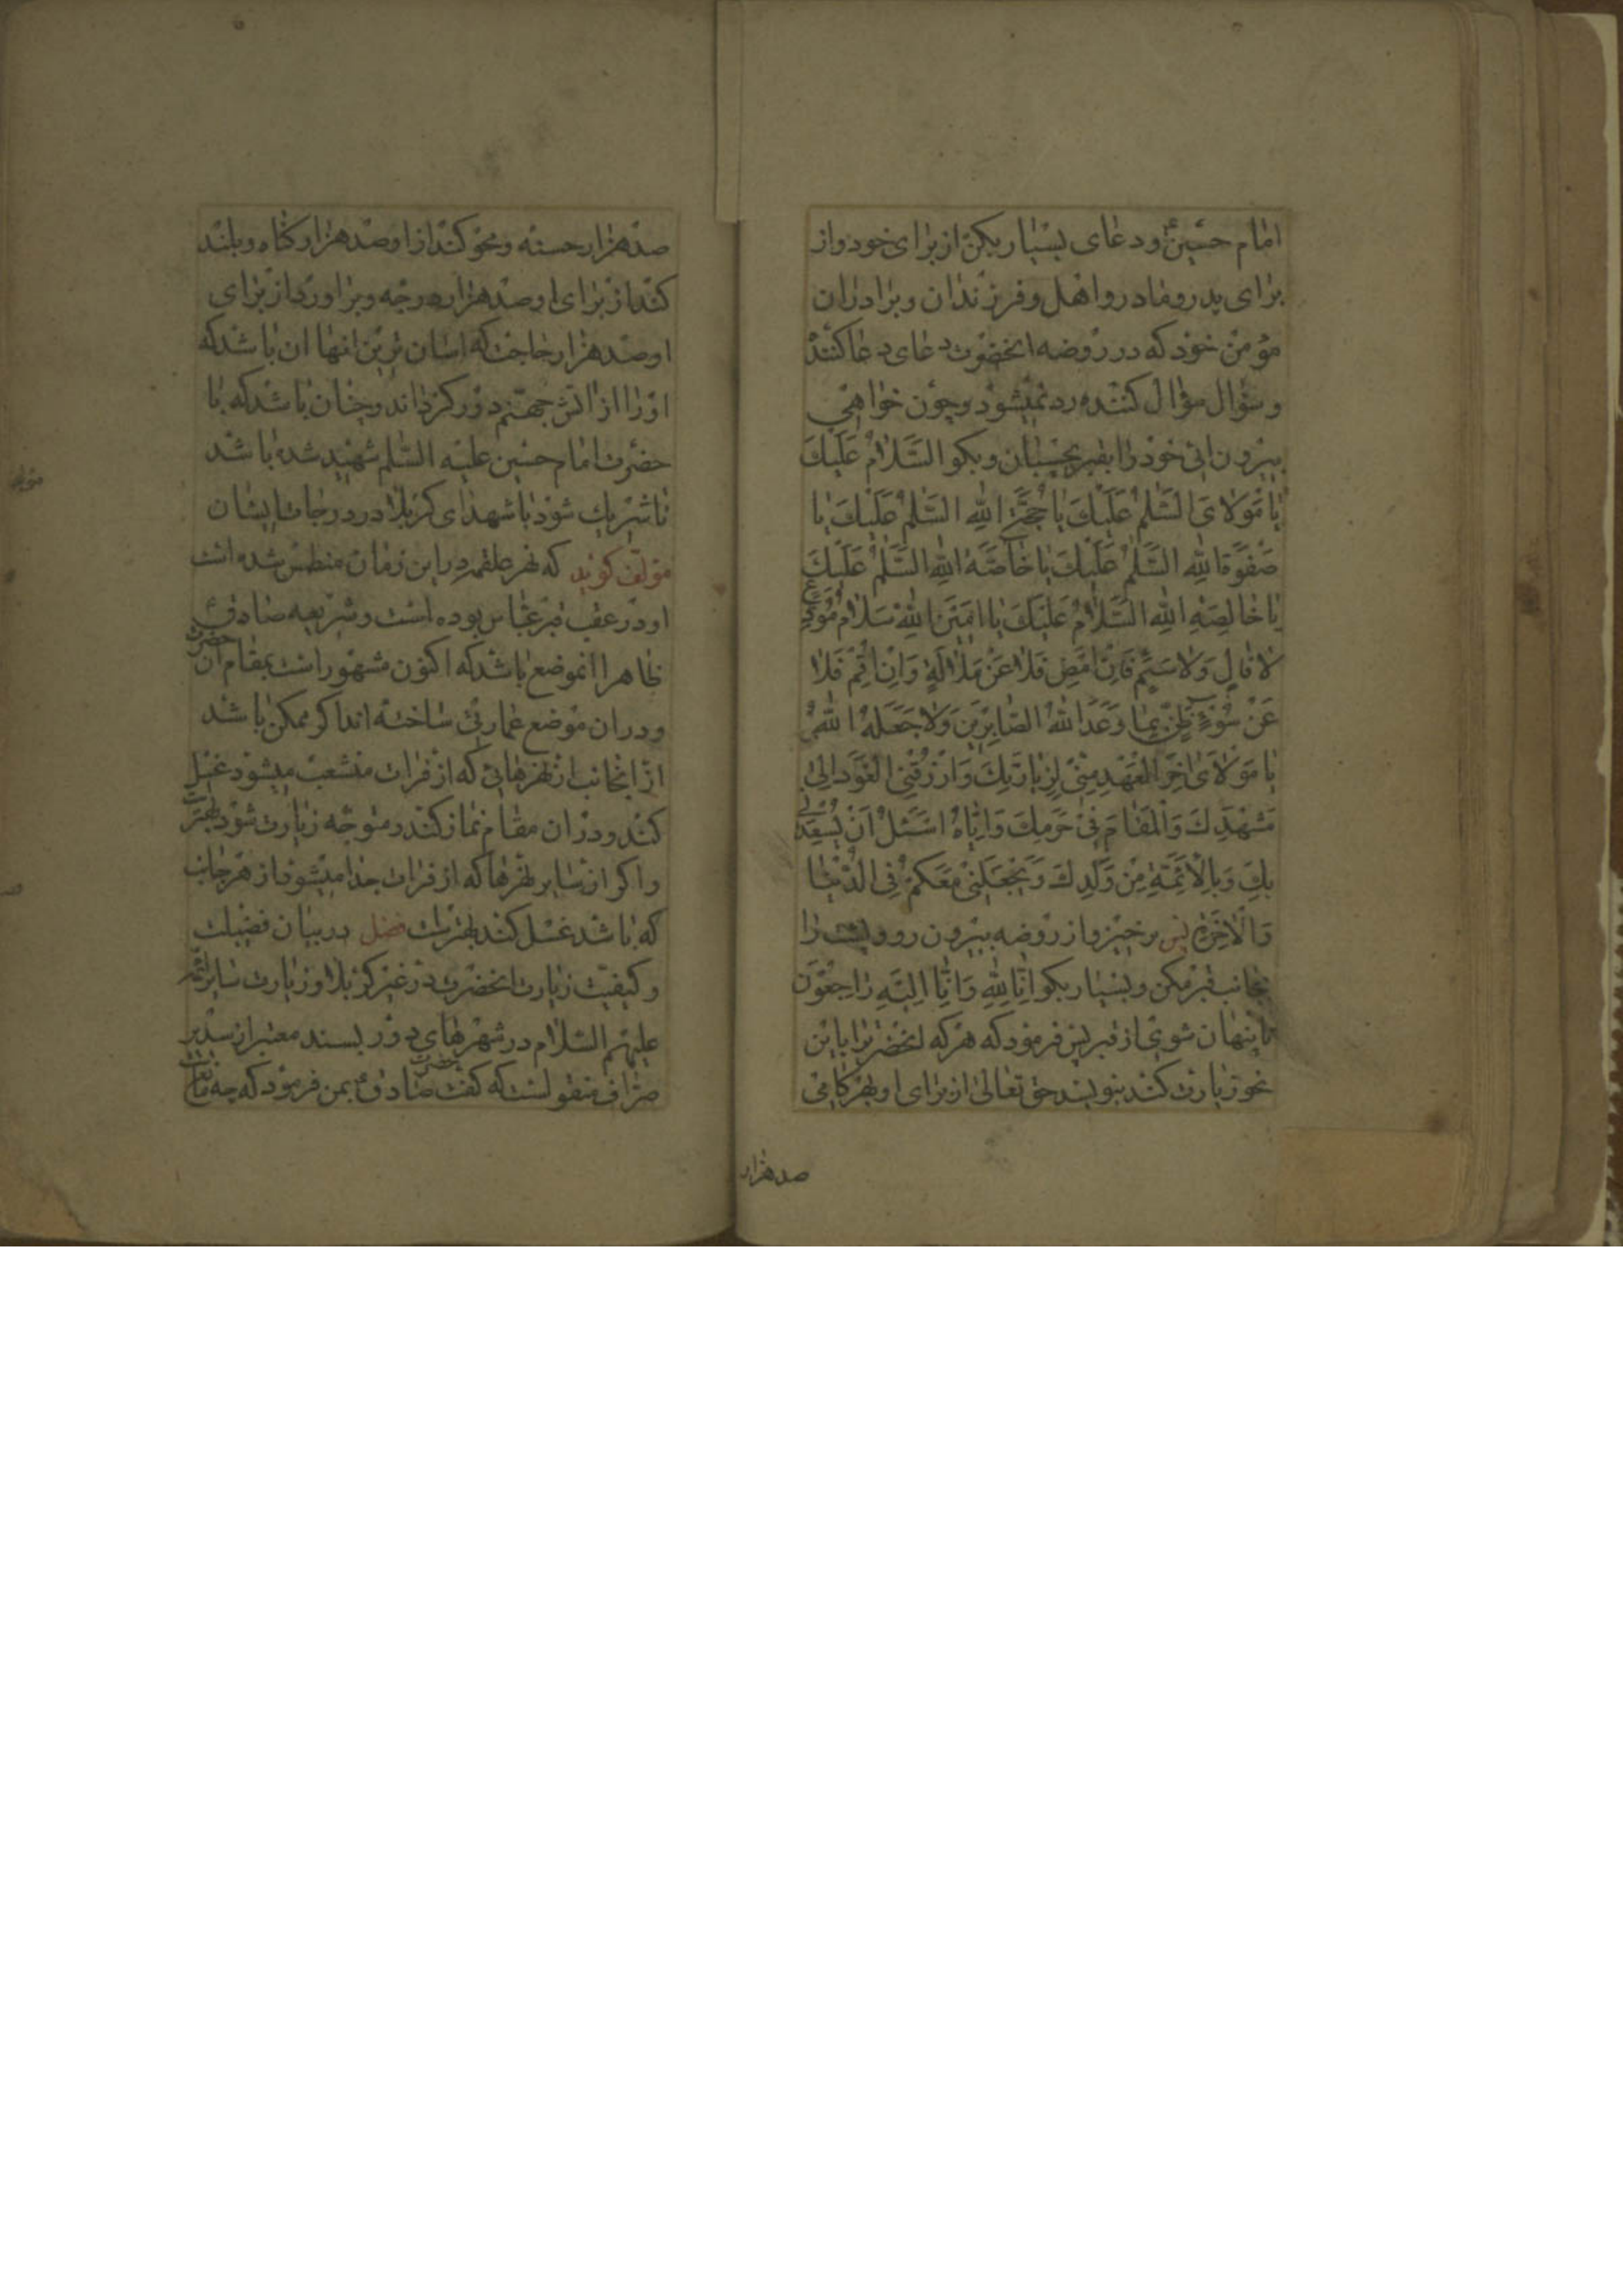 امام حسینؑ و دعای بسیار بکن از برای خود و از
برای پدر و مادر و اهل و فرزندان و برادران
مؤمن خود که در روضه انحضرت دعای دعا کننده
و سؤال سؤال کننده رد نمیشود و چون خواهی
بیرون ائی خود را بقبر بچسبان و بکو السَّلامُ عَلَیْکَ
یا مَوْلایَ السَّلمُ عَلَیْکَ یا حُجَّةَ اللهِ السَّلمُ عَلَیْکَ یا
صَفْوَةَ اللهِ السَّلمُ عَلَیْکَ یا خاصَّةَ اللهِ السَّلمُ عَلَیْکَ
یا خالِصَةَ اللهِ السَّلامُ عَلَیْکَ یا اَمینَ اللهِ سَلامُ مُوَدِّعٍ
لا قالٍ وَلا سَئِمٍ فَاِنْ اَمْضِ فَلا عَنْ مَلالَةٍ وَاِنْ اُقِمْ فَلا
عَنْ سُوْءِ ظَنٍّ بِما وَعَدَ اللهُ الصّابِرینَ وَلا جَعَلَهُ اللهُ
یا مَوْلایَ اخِرَ الْعَهْدِ مِنّی لِزِیارَتِکَ وَارْزُقْنِی الْعَوْدَ اِلی
مَشْهَدِکَ وَالْمَقامَ فی حَرَمِکَ وَاِیّاهُ اَسْئَلُ اَنْ یُسْعِدَنی
بِکَ وَبِالْاَئِمَّةِ مِنْ وَلَدِکَ وَیَجْعَلَنی مَعَکُمْ فِی الدُّنْیا
وَالْاخِرَةِ پس برخیز و از روضه بیرون رو و پشت را
بجانب قبر مکن و بسیار بکو اِنّا لِلّهِ وَاِنّا اِلَیْهِ راجِعُوْنَ
تا پنهان شوی از قبر پس فرمود که هر که انحضرترا باین
نحو زیارت کند بنویسد حق تعالی از برای او بهر کامی
صد هزار
صد هزار حسنه و محو کند از او صد هزار کناه و بلند
کند از برای او صد هزار درجه و براورد از برای
او صد هزار حاجت که اسان ترین انها ان باشد که
او را از اتش جهنم دور کرداند و چنان باشد که با
حضرت امام حسین علیه السلم شهید شده باشد
تا شریک شود با شهدای کربلا در درجات ایشان
مؤلف کوید که نهر علقمه در این زمان منطمس شده است
و در عقب قبر عباس بوده است و شریعه صادقؑ
ظاهرا انموضع باشد که اکنون مشهور است بمقام ان حضرت
و در ان موضع عمارتی ساخته اند اکر ممکن باشد
از انجانب از نهرهائی که از فرات منشعب میشود غسل
کند و در ان مقام نماز کند و متوجه زیارت شود بهتر است
و اکر از سایر نهرها که از فرات جدا میشود از هر جانب
که باشد غسل کند بهتر است فصل در بیان فضیلت
و کیفیت زیارت انحضرت در غیر کربلا و زیارت سایر ائمه
علیهم السلام در شهرهای دور بسند معتبر از سدیر
صراف منقولست که کفت حضرت صادقؑ بمن فرمود که چه مانعست